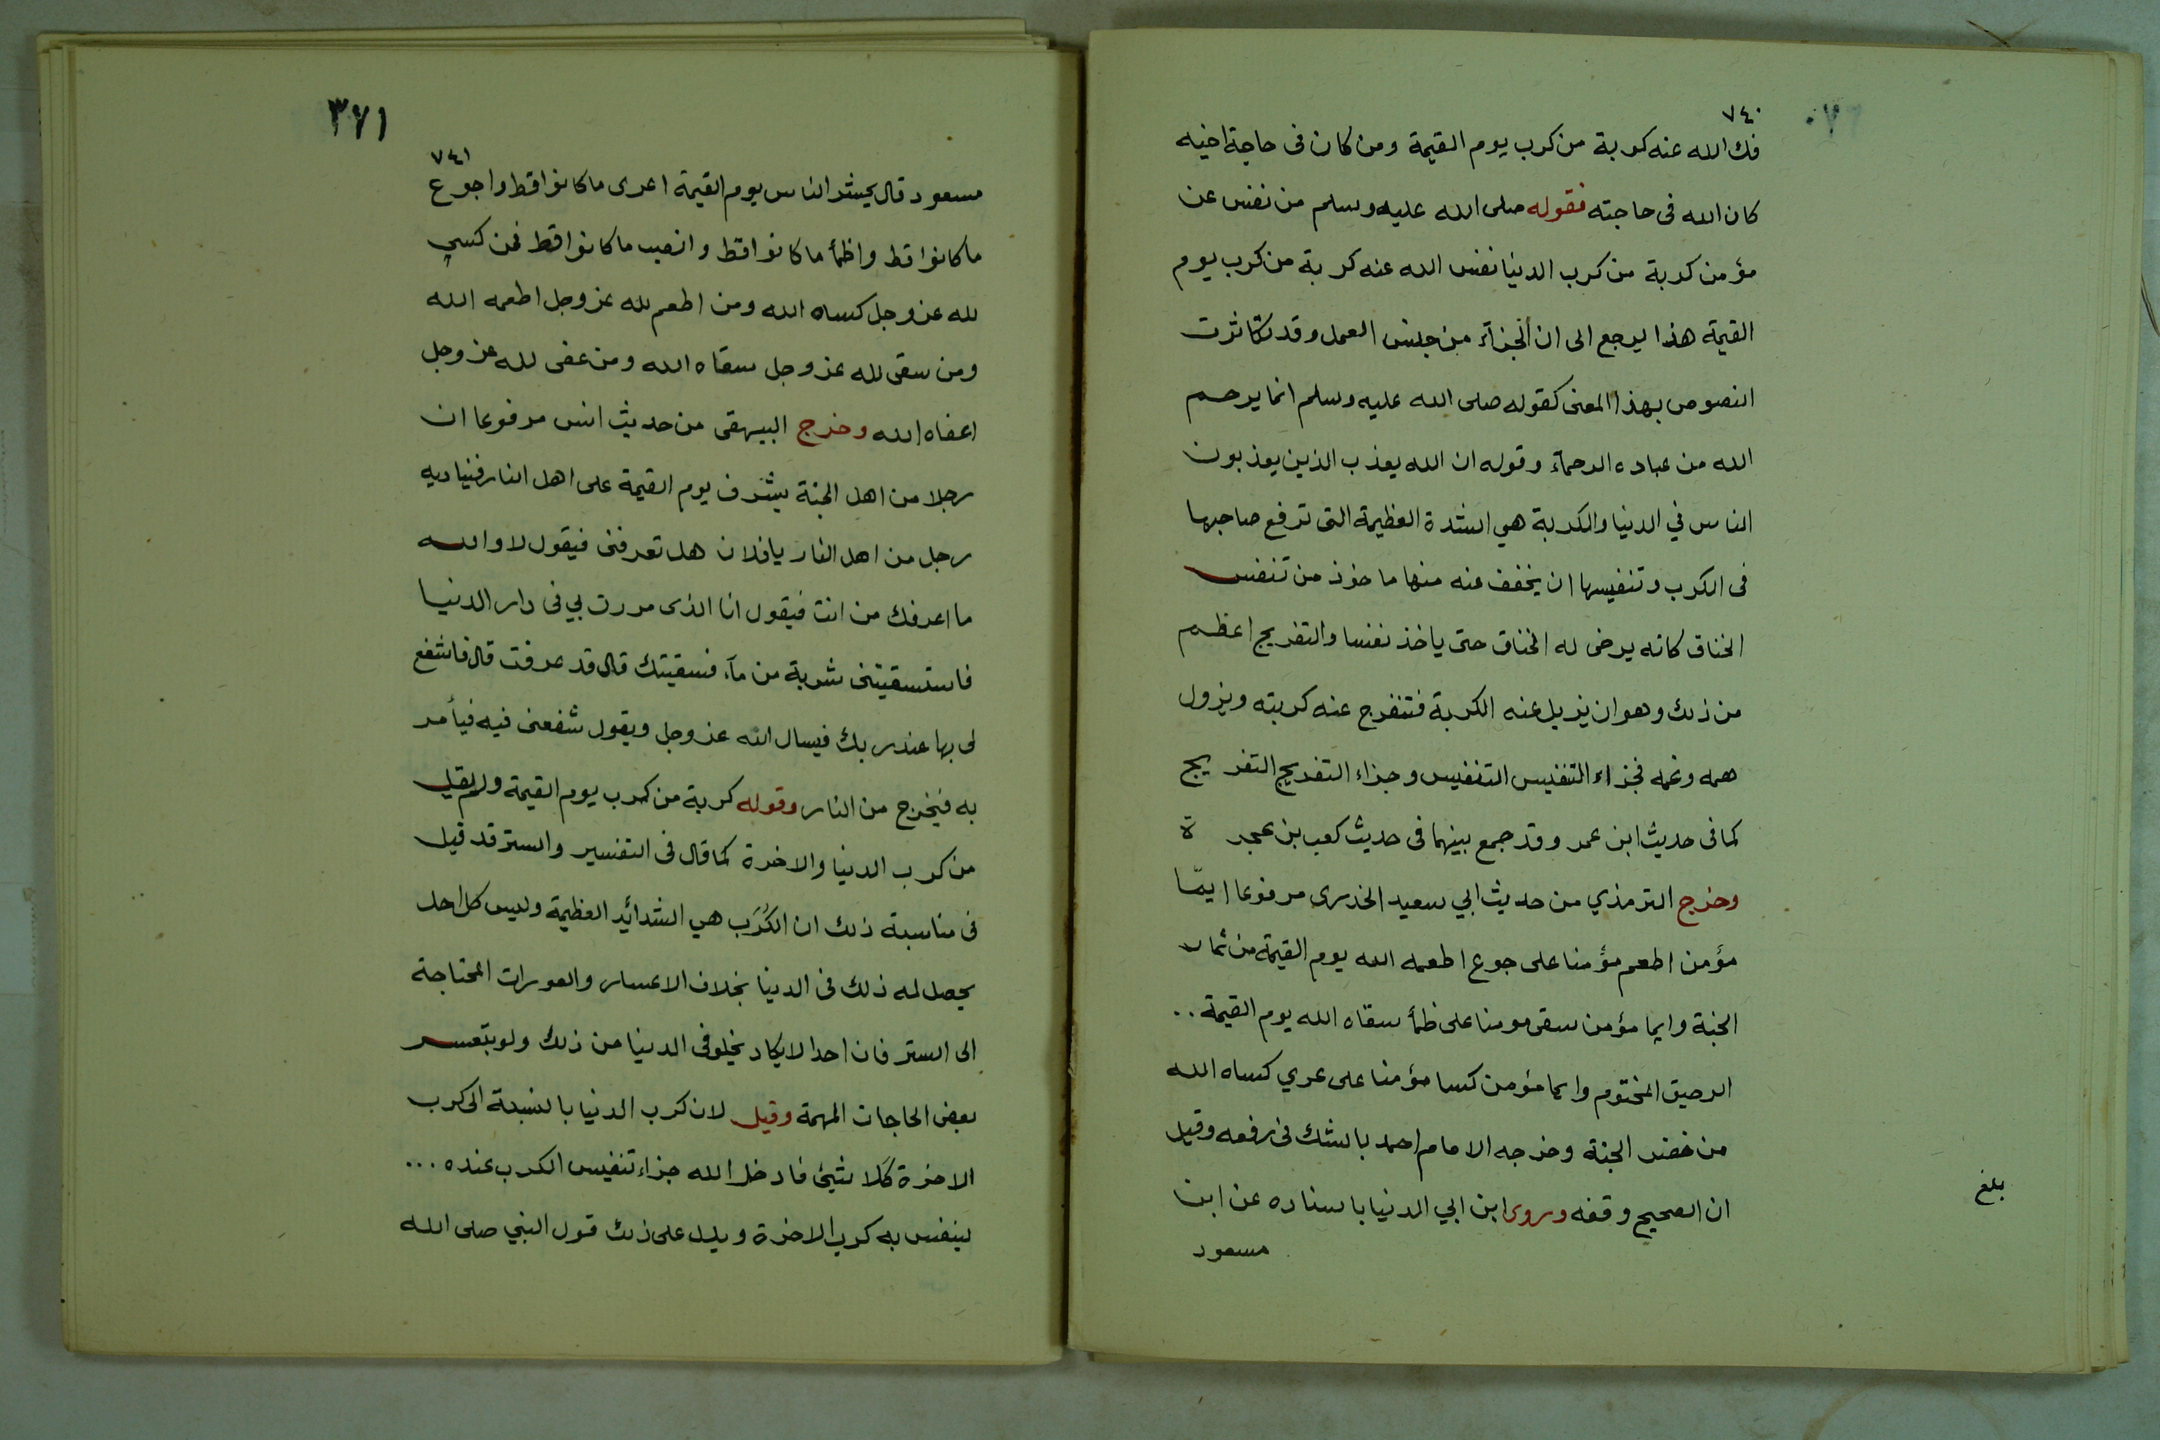 ٧٤٠
فك الله عنه كربة من كرب يوم القيمة ومن كان فى حاجة اخيه
كان الله فى حاجته فقوله صلى الله عليه وسلم من نفس عن
مؤمن كربة من كرب الدنيا نفس الله عنه كربة من كرب يوم
القيمة هذا يرجع الى ان الجزآء من جنس العمل وقد تكاثرت
النصوص بهذا المعنى كقوله صلى الله عليه وسلم انما يرحم
الله من عباده الرحمآء وقوله ان الله يعذب الذين يعذبون
الناس في الدنيا والكربة هي الشدة العظيمة التى ترفع صاحبها
فى الكرب وتنفيسها ان يخفف عنه منها ماخوذ من تنفس
الخناق كانه يرخى له الخناق حتى ياخذ نفسا والتفريج اعظم
من ذلك وهو ان يزيل عنه الكربة فتنفرج عنه كربته ويزول
همه وغمه فجزاء التنفيس التنفيس وجزاء التفريج التفريج
كما فى حديث ابن عمر وقد جمع بينهما فى حديث كعب بن عجرة
وخرج الترمذي من حديث ابي سعيد الخدرى مرفوعا ايمّا
مؤمن اطعم مؤمنا على جوع اطعمه الله يوم القيمة من ثمار
الجنة وايما مؤمن سقى مومنا على ظمأ سقاه الله يوم القيمة ..
الرحيق المختوم وايما مؤمن كسا مؤمنا على عري كساه الله
من خضر الجنة وخرجه الامام احمد بالشك فى رفعه وقيل
ان الصحيح وقفه وروى ابن ابي الدنيا باسناده عن ابن
مسعود
بلغ
٣٧١
٧٤١
مسعود قال يحشر الناس يوم القيمة اعرى ما كانوا قط واجوع
ما كانوا قط واظمأ ما كانوا قط وانصب ما كانوا قط فمن كسي
لله عز وجل كساه الله ومن اطعم لله عز وجل اطعمه الله
ومن سقى لله عز وجل سقاه الله ومن عفى لله عز وجل
اعفاه الله وخرج البيهقى من حديث انس مرفوعا ان
رجلا من اهل الجنة يشرف يوم القيمة على اهل النار فيناديه
رجل من اهل النار يا فلان هل تعرفنى فيقول لا والله
ما اعرفك من انت فيقول انا الذى مررت بي فى دار الدنيا
فاستسقيتنى شربة من مآء فسقيتك قال قد عرفت قال فاشفع
لى بها عند ربك فيسال الله عز وجل ويقول شفعنى فيه فيأمر
به فيخرج من النار وقوله كربة من كرب يوم القيمة ولم يقل
من كرب الدنيا والاخرة كما قال فى التفسير والستر قد قيل
فى مناسبة ذلك ان الكُرَب هي الشدائد العظيمة وليس كل احد
يحصل له ذلك فى الدنيا بخلاف الاعسار والعورات المحتاجة
الى الستر فان احدا لا يكاد يخلو فى الدنيا من ذلك ولو بتعسر
بعض الحاجات المهمة وقيل لان كرب الدنيا بالنسبة الى كرب
الاخرة كلا شئ فادخر الله جزاء تنفيس الكرب عنده ...
لينفس به كرب الاخرة ويدل على ذلك قول النبي صلى الله